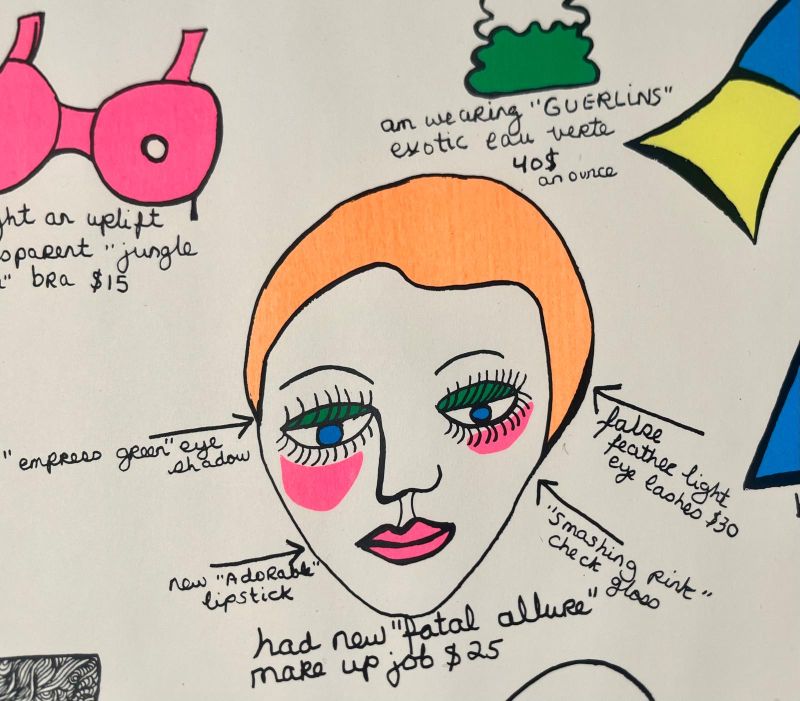 am wearing "GUERLINS"
exotic eau verte
40$
an ounce
ght an uplift
sparent "jungle
" bra $15
"empress green" eye
shadow
false
feather light
eye lashes $30
"smashing pink"
check gloss
new "Adorable"
lipstick
had new "fatal allure"
make up job $25